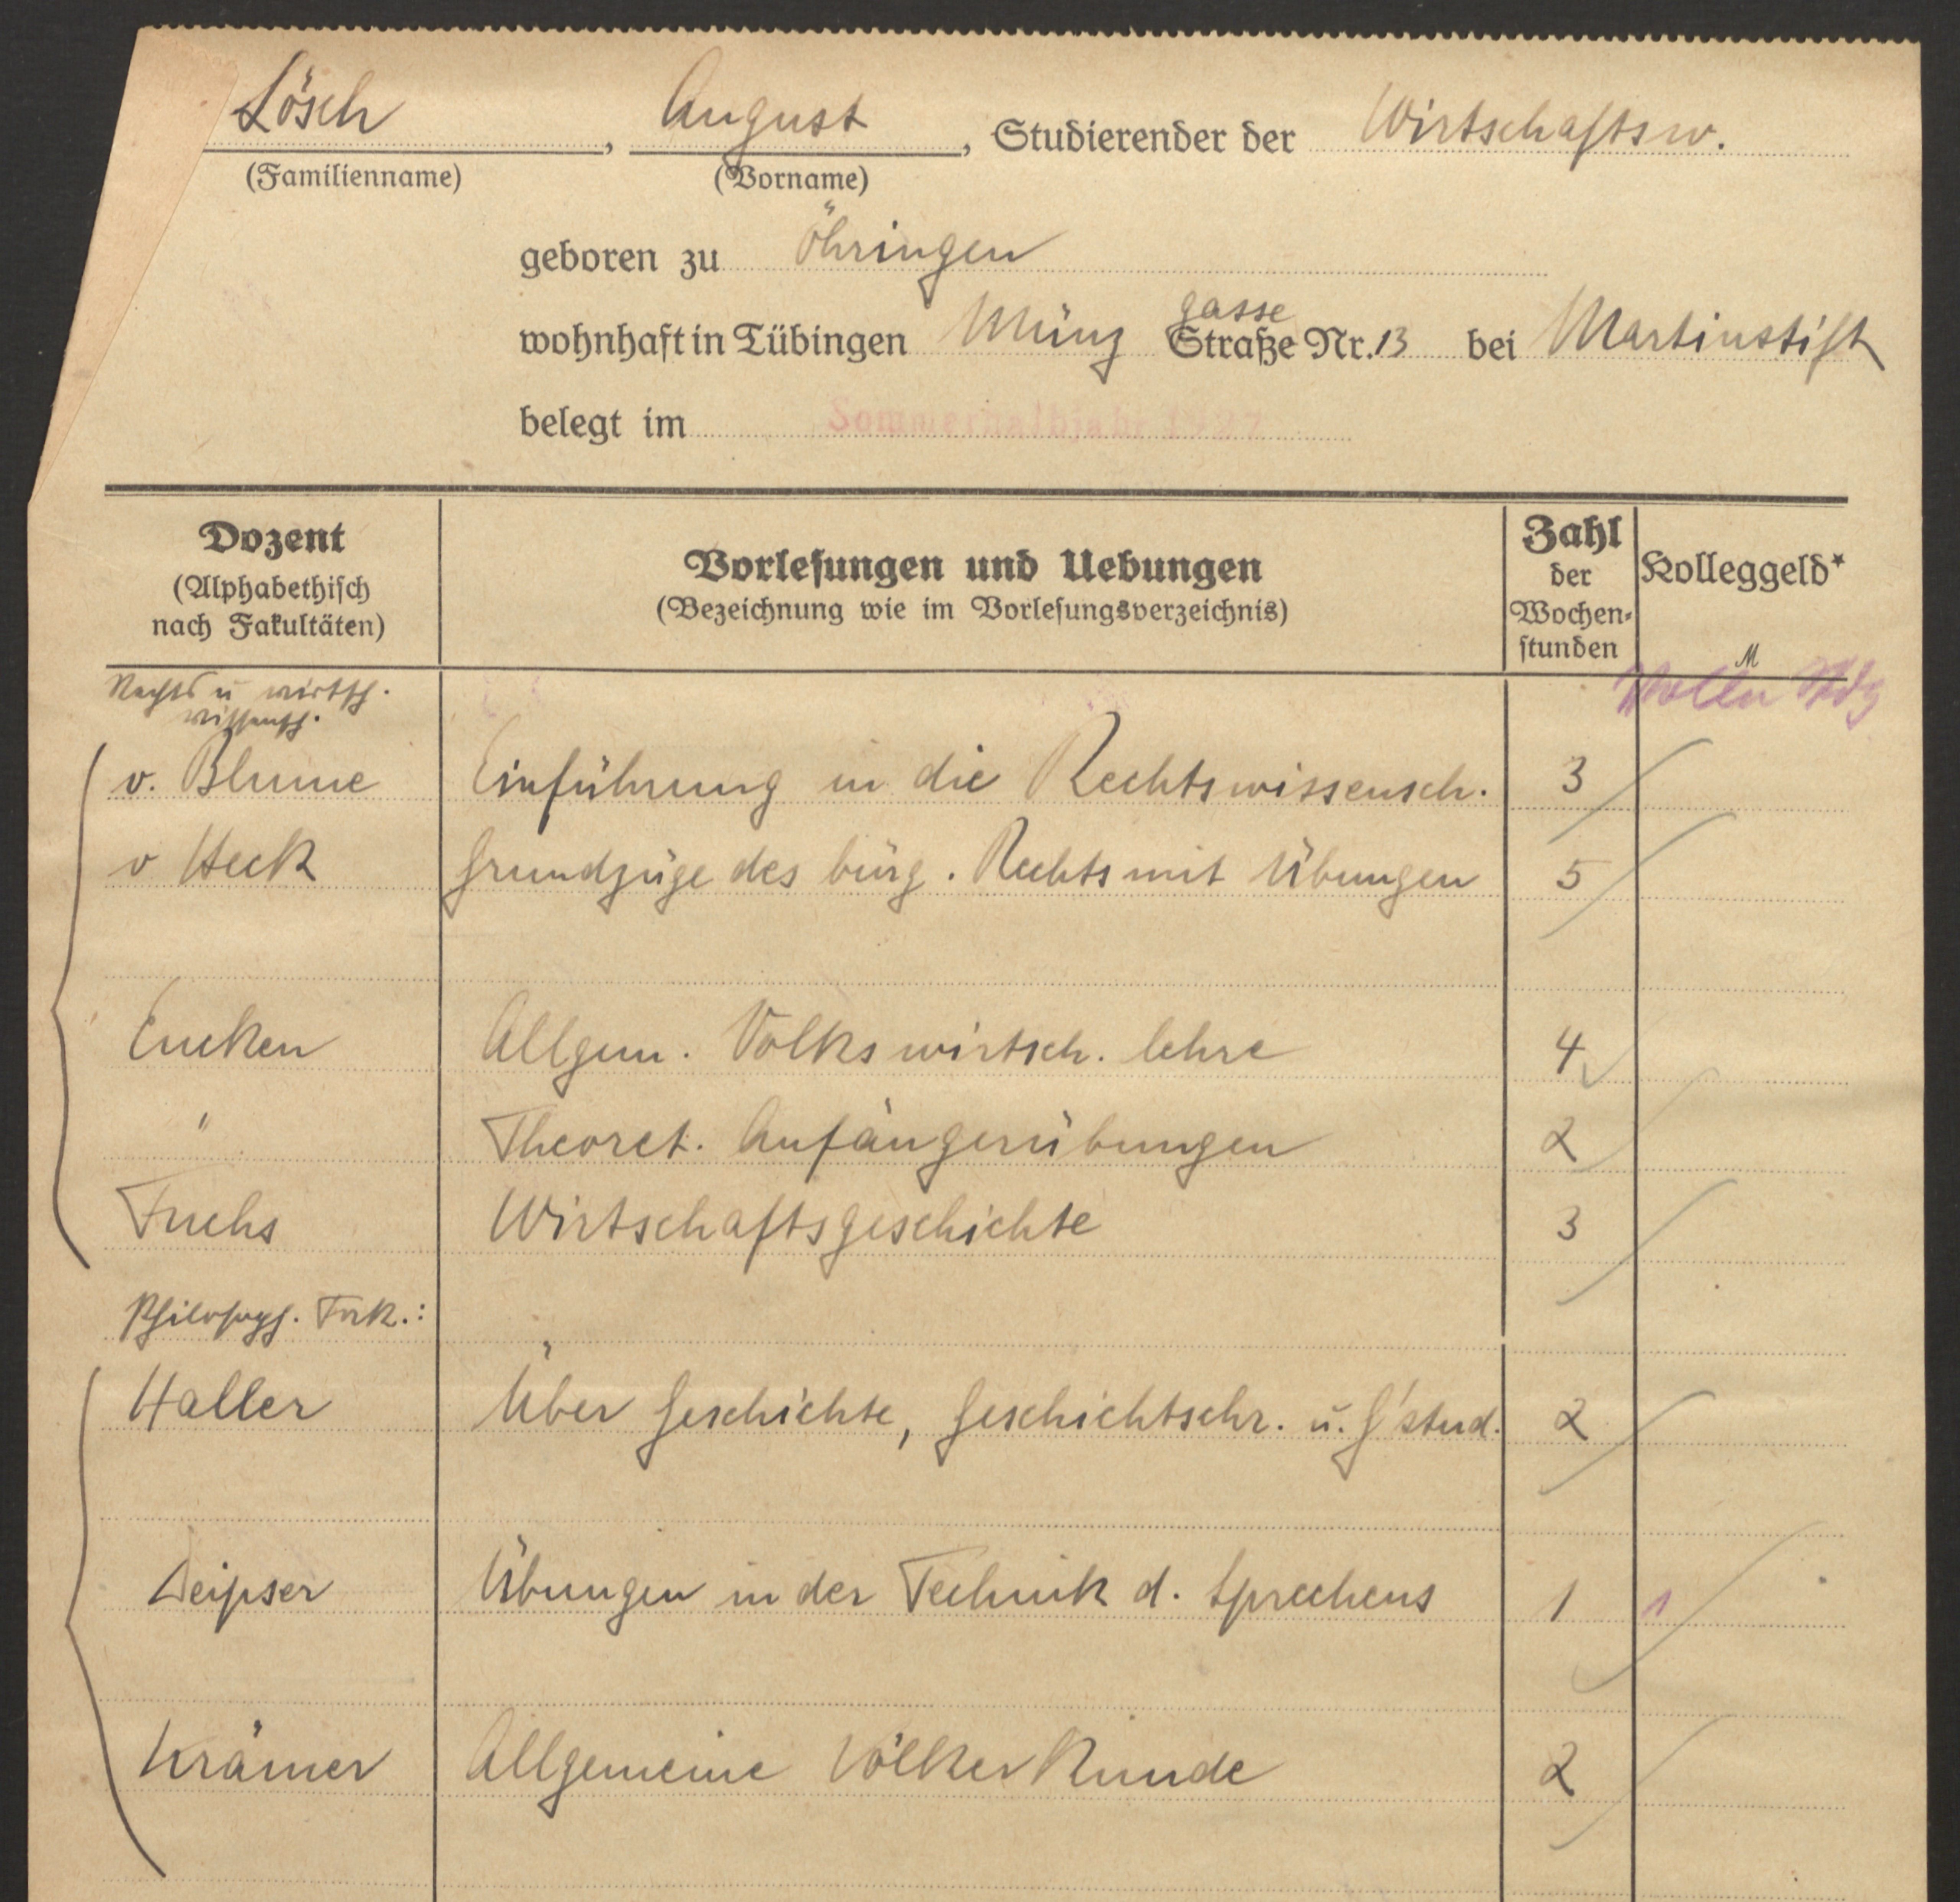 Lösch, August, Studierender der Wirtschaftsw.
(Familienname) (Vorname)
geboren zu Öhringen
gasse
wohnhaft in Tübingen Münz Straße Nr. 13 bei Martinstift
belegt im Sommerhalbjahr 1927
Dozent
(Alphabethisch
nach Fakultäten)
Vorlesungen und Uebungen
(Bezeichnung wie im Vorlesungsverzeichnis)
Zahl
der
Wochen-
stunden
Kolleggeld*
M
Rechts u wirtsch.
wissensch.
v. Blume Einführung in die Rechtswissensch. 3
v Heck Grundzüge des bürg. Rechts mit Übungen 5
Eucken Allgem. Volkswirtsch. lehre 4
" Theoret. Anfängerübungen 2
Fuchs Wirtschaftsgeschichte 3
Philosoph. Fak.:
Haller Über Geschichte, Geschichtschr. u. G'stud. 2
Übungen in der Technik d. Sprechens 1 1
Krämer Allgemeine Völkerkunde 2